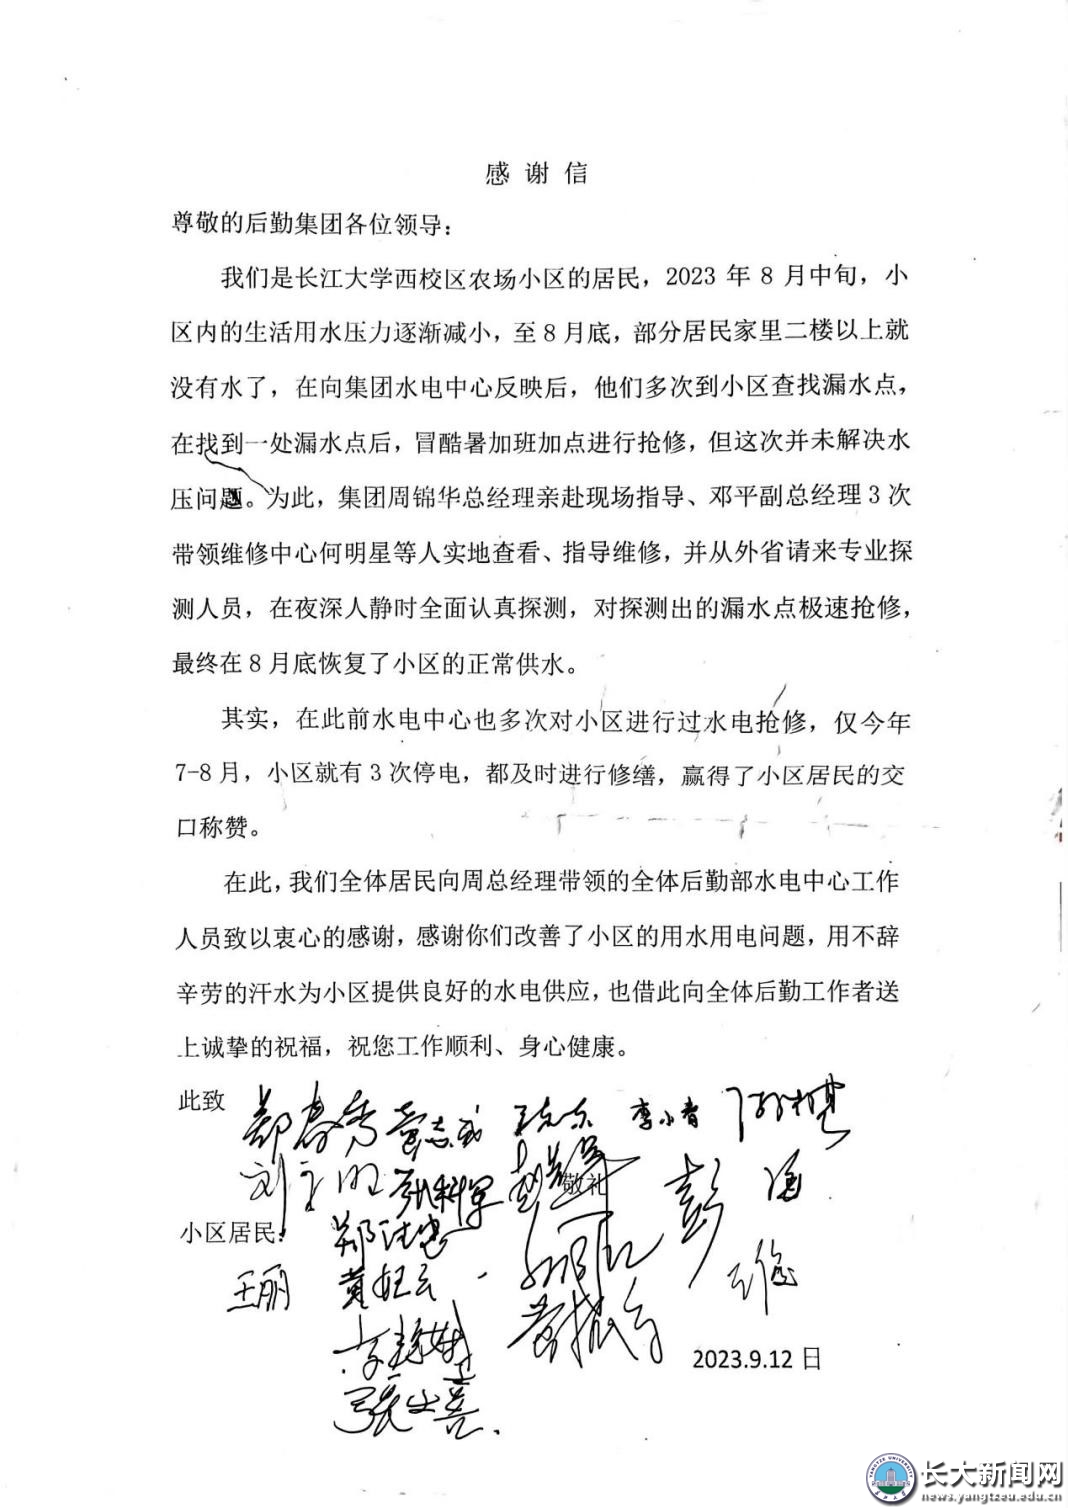 感谢信
尊敬的后勤集团各位领导：
我们是长江大学西校区农场小区的居民，2023 年 8 月中旬，小
区内的生活用水压力逐渐减小，至 8 月底，部分居民家里二楼以上就
没有水了，在向集团水电中心反映后，他们多次到小区查找漏水点，
在找到一处漏水点后，冒酷暑加班加点进行抢修，但这次并未解决水
压问题。为此，集团周锦华总经理亲赴现场指导、邓平副总经理 3 次
带领维修中心何明星等人实地查看、指导维修，并从外省请来专业探
测人员，在夜深人静时全面认真探测，对探测出的漏水点极速抢修，
最终在 8 月底恢复了小区的正常供水。
其实，在此前水电中心也多次对小区进行过水电抢修，仅今年
7-8 月，小区就有 3 次停电，都及时进行修缮，赢得了小区居民的交
口称赞。
在此，我们全体居民向周总经理带领的全体后勤部水电中心工作
人员致以衷心的感谢，感谢你们改善了小区的用水用电问题，用不辞
辛劳的汗水为小区提供良好的水电供应，也借此向全体后勤工作者送
上诚挚的祝福，祝您工作顺利、身心健康。
此致
郑春秀 李小青
敬礼
彭
小区居民：
王丽
2023.9.12 日
长大新闻网
news.yangtzeu.edu.cn